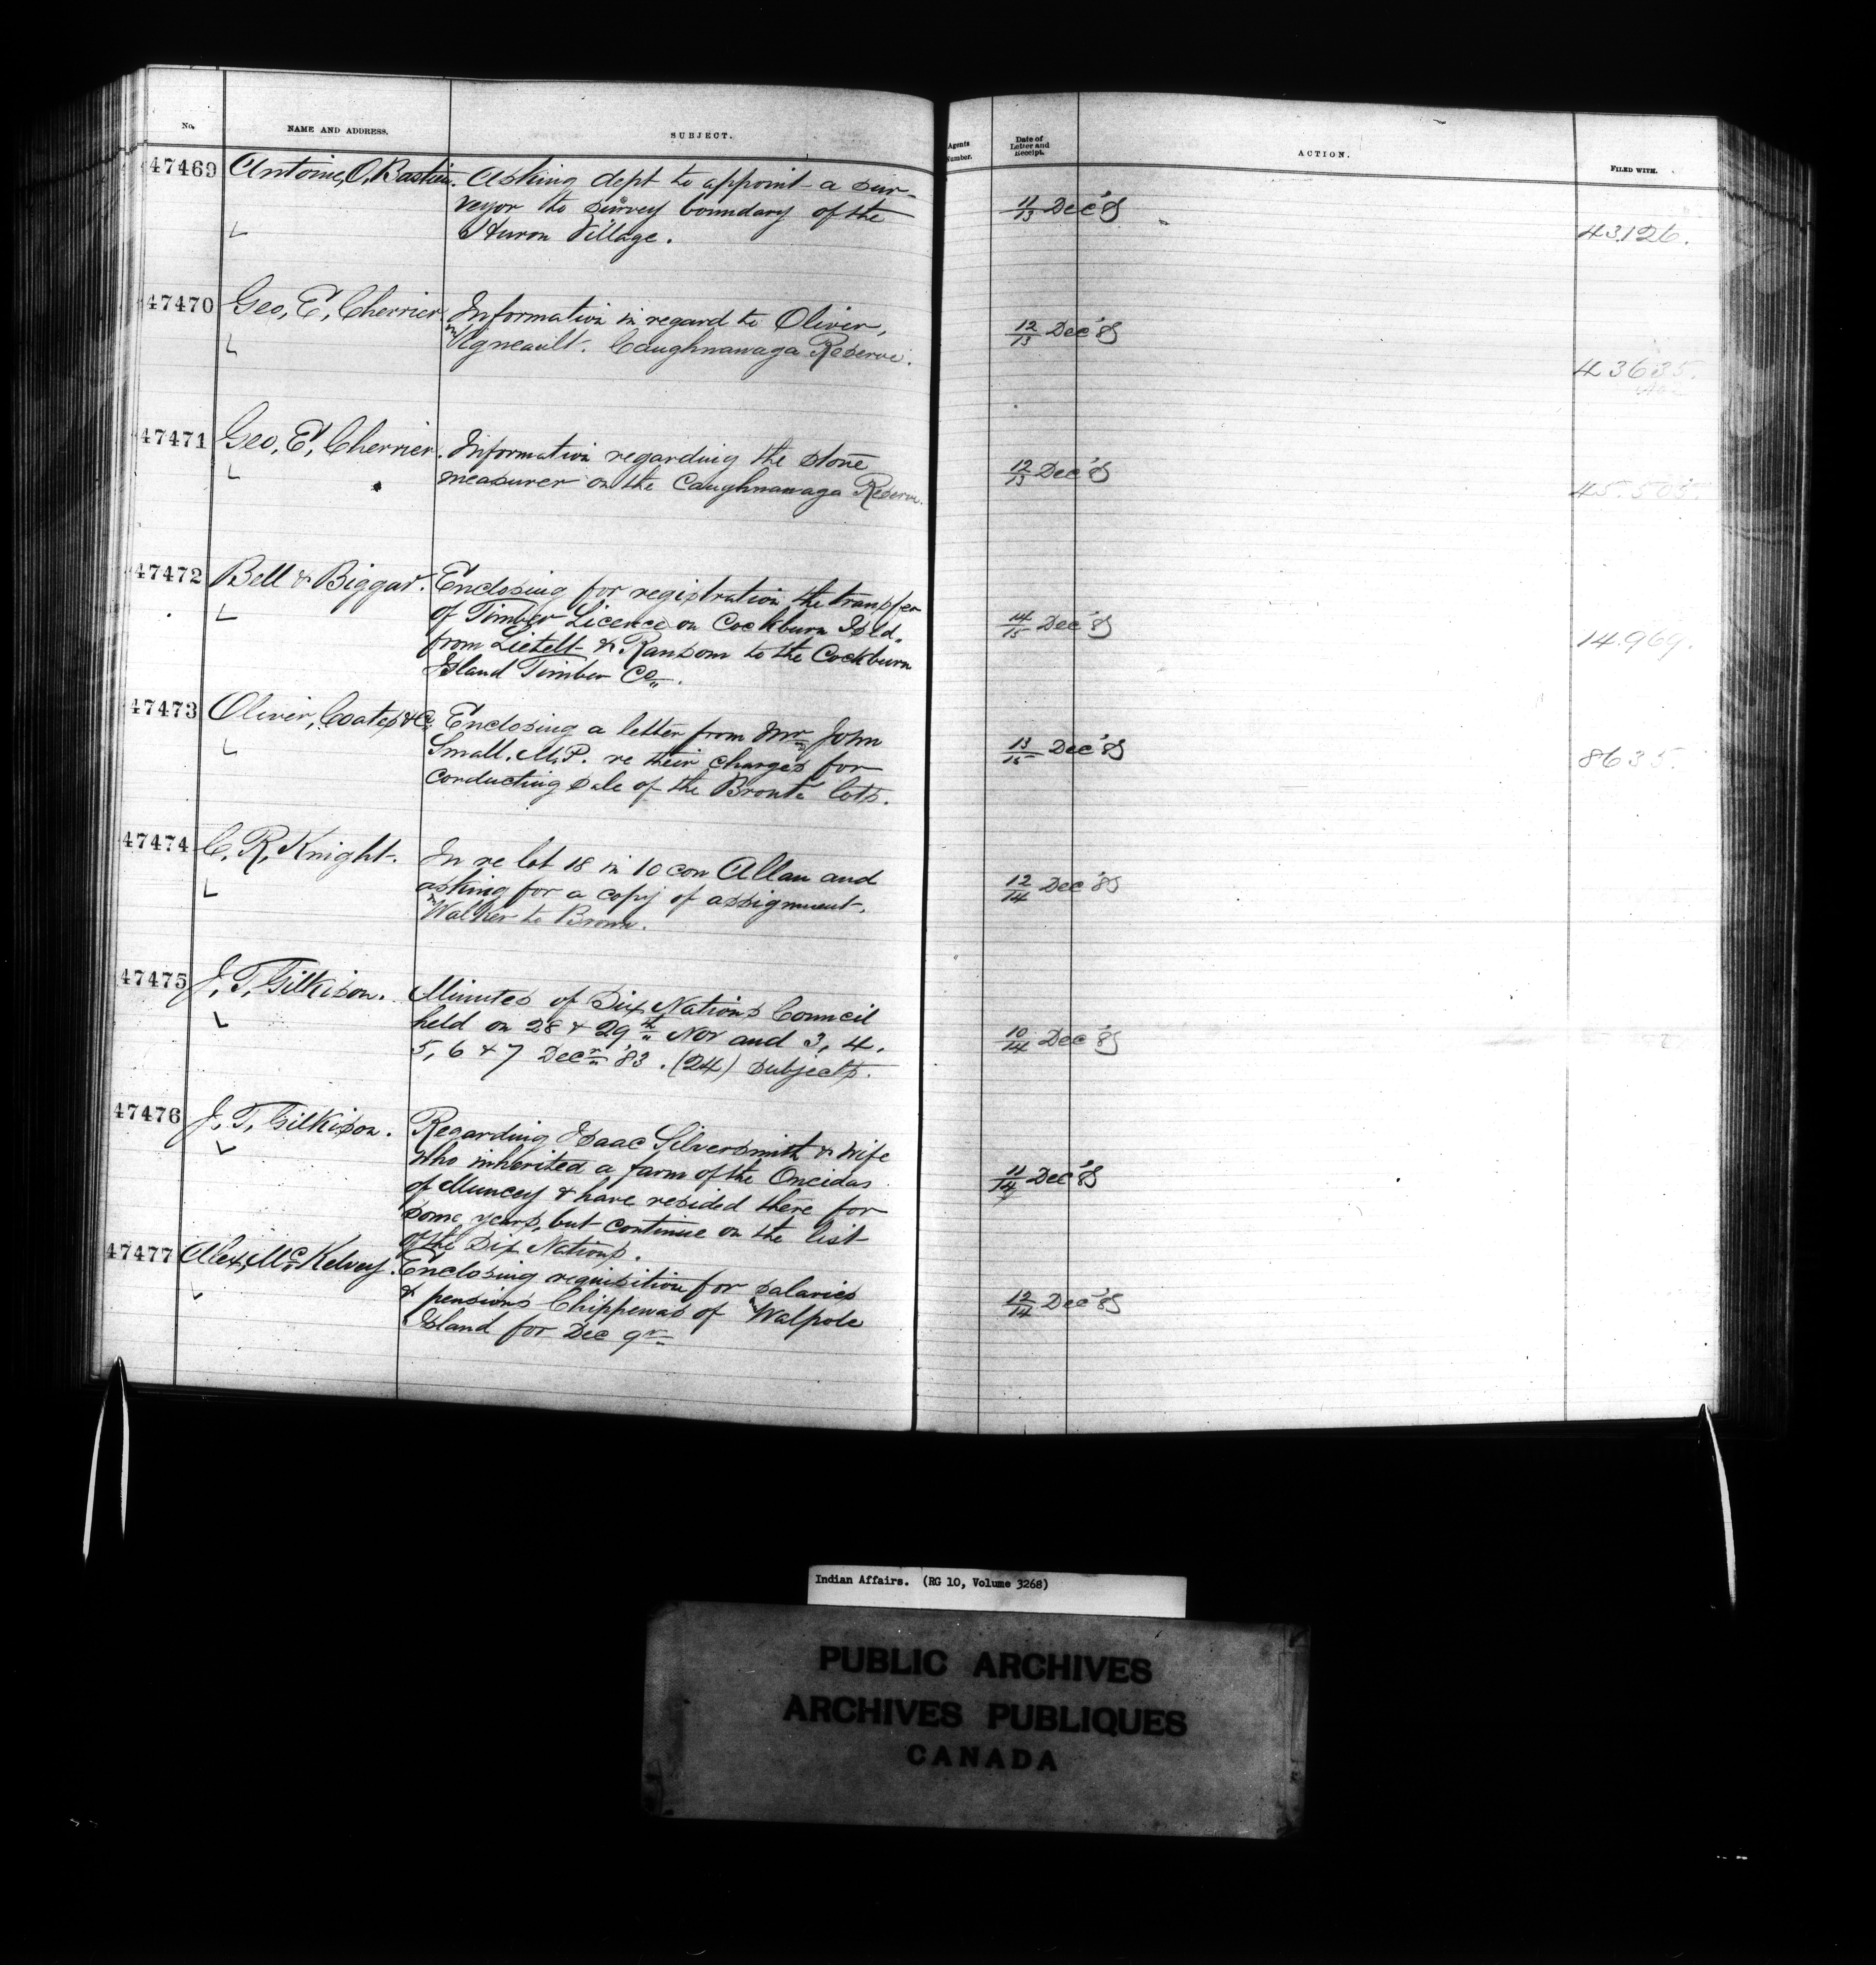 No. NAME AND ADDRESS. SUBJECT. Agents Number. Date of Letter and Receipt. ACTION. FILED WITH.
47469 Antoine, O, Bastien. Asking dept to appoint a sur-
veyor to survey boundary of the
Huron Village.
11/13 Dec '85
43,126.
47470 Geo, E, Cherrier. Information in regard to Oliver,
Agneault. Caughnawaga Reserve.
12/13 Dec '85
43635.
47471 Geo, E, Cherrier. Information regarding the stone
measurer on the Caughnawaga Reserve.
12/13 Dec '85
45.505.
47472 Bell & Biggar. Enclosing for registration the transfer
of Timber Licence on Cockburn Isld.
from Lietelt & Ransom to the Cockburn
Island Timber Co.
14/15 Dec '85
14.969.
47473 Oliver, Coates & Co. Enclosing a letter from Mr John
Small, M.P. re their charges for
conducting sale of the Bronte lots.
13/15 Dec '85
8635.
47474 C, R, Knight. In re lot 18 in 10 con Allan and
asking for a copy of assignment,
Walker to Brown.
12/14 Dec '85
47475 J, T, Gilkison. Minutes of Six Nations Council
held on 28 & 29th Nov and 3, 4,
5, 6 & 7 Decr '83. (24) subjects.
10/14 Dec '85
47476 J, T, Gilkison. Regarding Isaac Silversmith & wife
who inherited a farm of the Oneidas
of Muncey & have resided there for
some years, but continue on the list
of the Six Nations.
11/14 Dec '85
47477 Alex, McKelvey. Enclosing requisition for salaries
& pensions Chippewas of Walpole
Island for Dec qr
12/14 Dec '85
Indian Affairs. (RG 10, Volume 3268)
PUBLIC ARCHIVES
ARCHIVES PUBLIQUES
CANADA